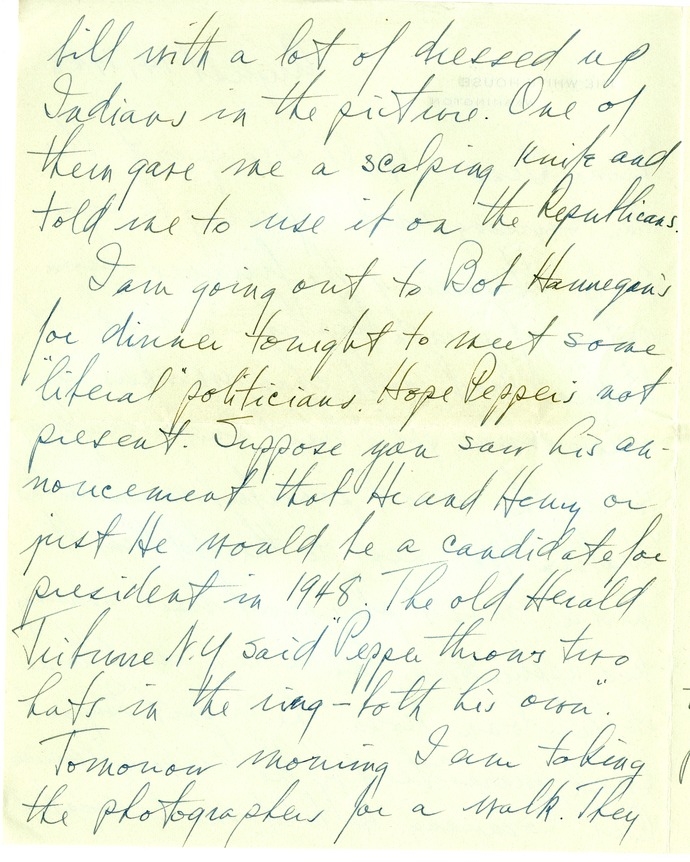 bill with a lot of dressed up
Indians in the picture. One of
them gave me a scalping knife and
told me to use it on the Republicans.
I am going out to Bob Hannegan's
for dinner tonight to meet some
"liberal" politicians. Hope Pepper's not
present. Suppose you saw his an-
noucement that He and Henry or
just He would be a candidate for
president in 1948. The old Herald
Tribune N.Y said "Pepper throws two
hats in the ring – both his own".
Tomorrow morning I am taking
the photographers for a walk. They